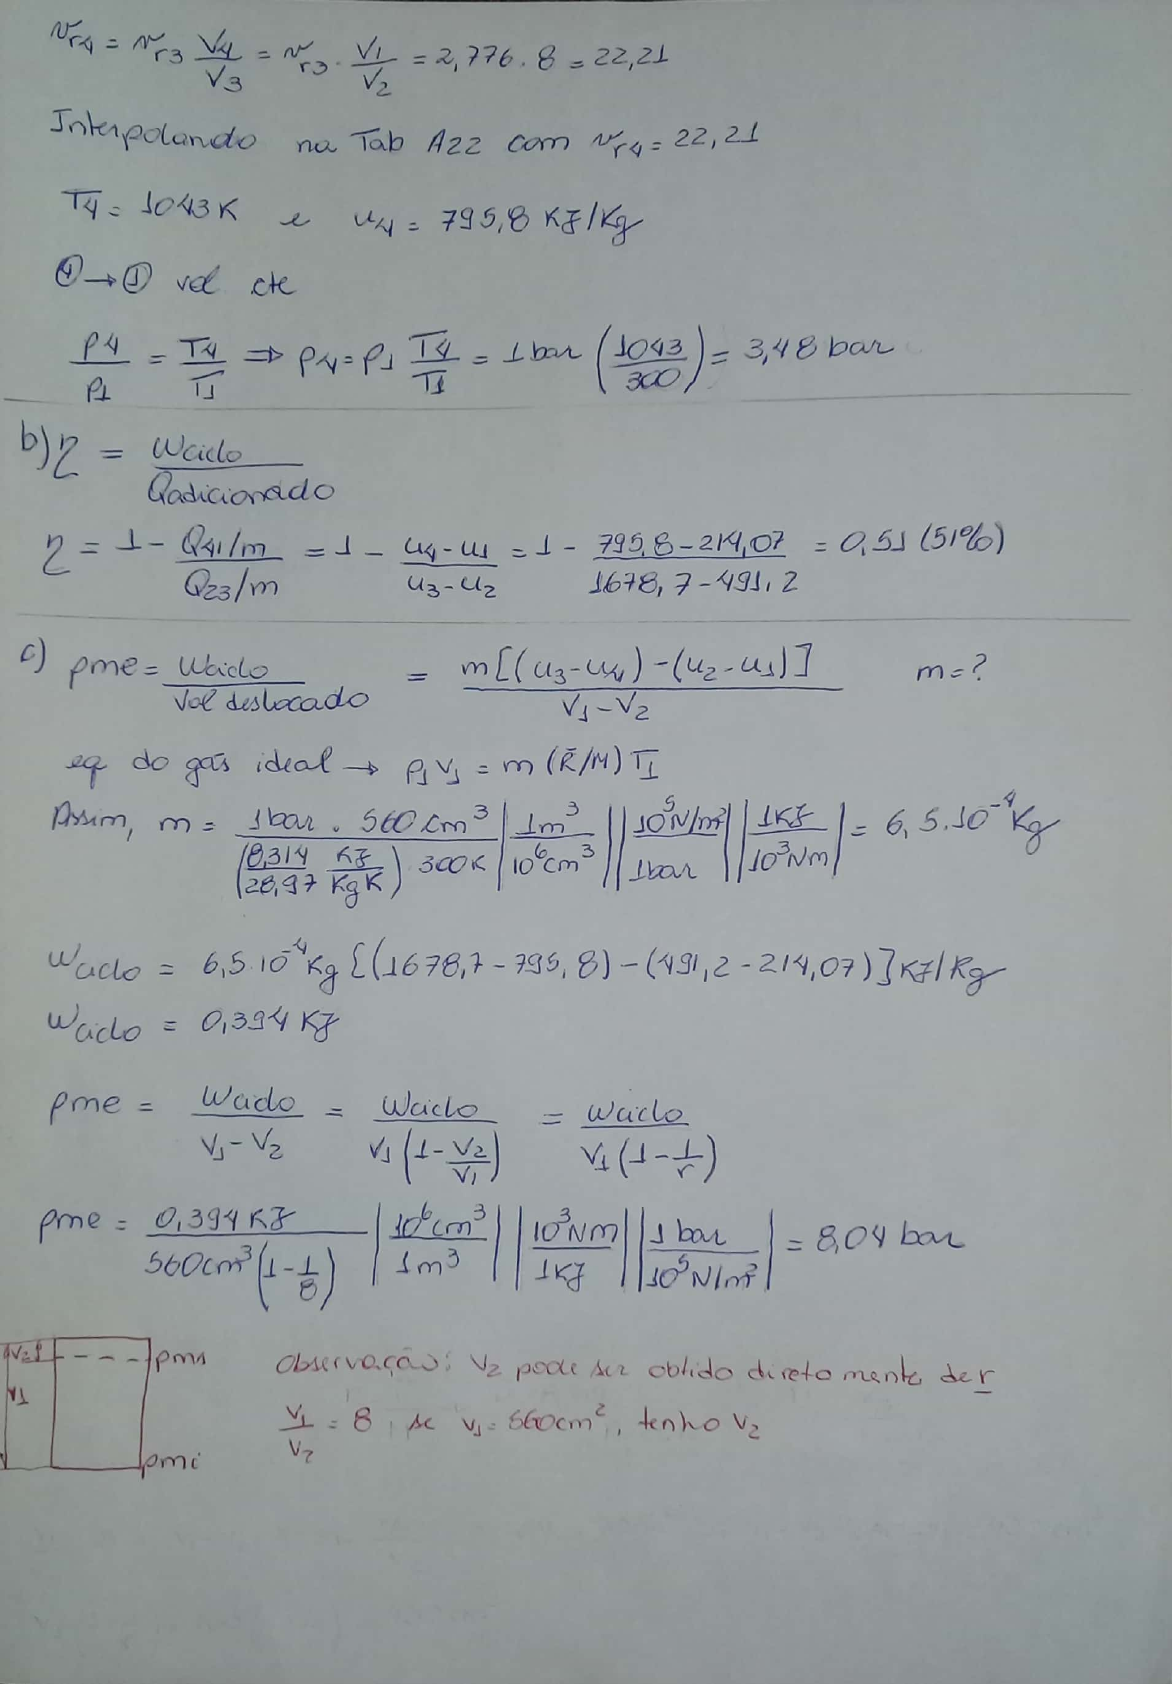 vr4 = vr3 V4/V3 = vr3 · V1/V2 = 2,776 · 8 = 22,21
Interpolando na Tab A22 com vr4 = 22,21
T4 = 1043K e u4 = 795,8 KJ/Kg
④→① vol cte
p4/p1 = T4/T1 ⇒ p4 = p1 T4/T1 = 1 bar (1043/300) = 3,48 bar
b) η = Wciclo/Qadicionado
η = 1 - (Q41/m)/(Q23/m) = 1 - (u4-u1)/(u3-u2) = 1 - (795,8-214,07)/(1678,7-491,2) = 0,51 (51%)
c) pme = Wciclo/Vol deslocado = m[(u3-u4)-(u2-u1)]/(V1-V2) m=?
eq do gás ideal → p1V1 = m (R̄/M) T1
Assim, m = 1bar · 560 cm³/((8,314/28,97 KJ/KgK) · 300K) |1m³/10⁶cm³| |10⁵N/m²/1bar| |1KJ/10³Nm| = 6,5·10⁻⁴Kg
Wciclo = 6,5·10⁻⁴Kg [(1678,7-795,8)-(491,2-214,07)] KJ/Kg
Wciclo = 0,394 KJ
pme = Wciclo/(V1-V2) = Wciclo/(V1(1-V2/V1)) = Wciclo/(V1(1-1/r))
pme = 0,394 KJ/(560cm³(1-1/8)) |10⁶cm³/1m³| |10³Nm/1KJ| |1 bar/10⁵N/m²| = 8,04 bar
pms
V1
pmi
Observação: V2 pode ser obtido diretamente de r
V1/V2 = 8, se V1 = 560cm², tenho V2